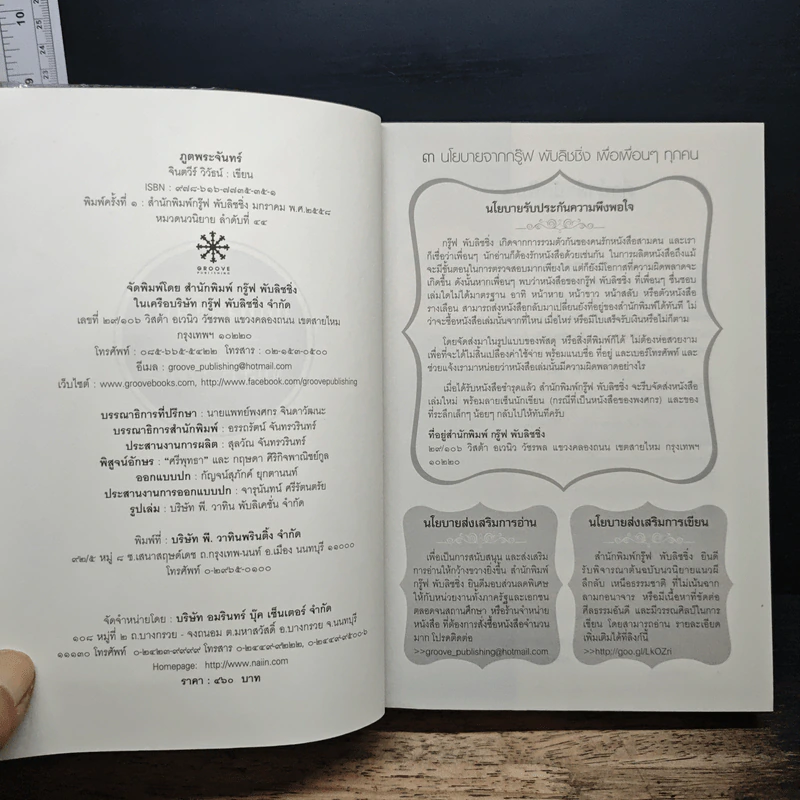 ภูตพระจันทร์
จินตวีร์ วิวัธน์ : เขียน
ISBN : ๙๗๘-๖๑๖-๗๗๓๕-๓๕-๑
พิมพ์ครั้งที่ ๑ : สำนักพิมพ์กรู๊ฟ พับลิชชิ่ง มกราคม พ.ศ.๒๕๕๘
หมวดนวนิยาย ลำดับที่ ๔๔
GROOVE
PUBLISHING
จัดพิมพ์โดย สำนักพิมพ์ กรู๊ฟ พับลิชชิ่ง
ในเครือบริษัท กรู๊ฟ พับลิชชิ่ง จำกัด
เลขที่ ๒๙/๑๐๖ วิสต้า อเวนิว วัชรพล แขวงคลองถนน เขตสายไหม
กรุงเทพฯ ๑๐๒๒๐
โทรศัพท์ : ๐๘๕-๖๖๕-๕๔๒๒ โทรสาร : ๐๒-๑๕๓-๐๕๐๐
อีเมล : groove_publishing@hotmail.com
เว็บไซต์ : www.groovebooks.com, http://www.facebook.com/groovepublishing
บรรณาธิการที่ปรึกษา : นายแพทย์พงศกร จินดาวัฒนะ
บรรณาธิการสำนักพิมพ์ : อรรถรัตน์ จันทรวรินทร์
ประสานงานการผลิต : สุลวัณ จันทรวรินทร์
พิสูจน์อักษร : "ศรีพุทธา" และ กฤษดา ศิริกิจพาณิชย์กูล
ออกแบบปก : กัญจน์สุภัคค์ ยุกตานนท์
ประสานงานการออกแบบปก : จารุนันทน์ ศรีรัตนตรัย
รูปเล่ม : บริษัท พี. วาทิน พับลิเคชั่น จำกัด
พิมพ์ที่ : บริษัท พี. วาทินพรินติ้ง จำกัด
๙๒/๕ หมู่ ๘ ซ.เสนาสฤษดิ์เดช ถ.กรุงเทพ-นนท์ อ.เมือง นนทบุรี ๑๑๐๐๐
โทรศัพท์ ๐-๒๙๖๕-๐๑๐๐
จัดจำหน่ายโดย : บริษัท อมรินทร์ บุ๊ค เซ็นเตอร์ จำกัด
๑๐๘ หมู่ที่ ๒ ถ.บางกรวย - จงถนอม ต.มหาสวัสดิ์ อ.บางกรวย จ.นนทบุรี
๑๑๑๓๐ โทรศัพท์ ๐-๒๔๒๓-๙๙๙๙ โทรสาร ๐-๒๔๔๙-๙๒๒๒, ๐-๒๔๔๙-๙๕๐๐๖
Homepage: http://www.naiin.com
ราคา : ๔๖๐ บาท
๓ นโยบายจากกรู๊ฟ พับลิชชิ่ง เพื่อเพื่อนๆ ทุกคน
นโยบายรับประกันความพึงพอใจ
กรู๊ฟ พับลิชชิ่ง เกิดจากการรวมตัวกันของคนรักหนังสือสามคน และเรา
ก็เชื่อว่าเพื่อนๆ นักอ่านก็ต้องรักหนังสือด้วยเช่นกัน ในการผลิตหนังสือถึงแม้
จะมีขั้นตอนในการตรวจสอบมากเพียงใด แต่ก็ยังมีโอกาสที่ความผิดพลาดจะ
เกิดขึ้น ดังนั้นหากเพื่อนๆ พบว่าหนังสือของกรู๊ฟ พับลิชชิ่ง ที่เพื่อนๆ ชื่นชอบ
เล่มใดไม่ได้มาตรฐาน อาทิ หน้าหาย หน้าขาว หน้าสลับ หรือตัวหนังสือ
รางเลือน สามารถส่งหนังสือกลับมาเปลี่ยนยังที่อยู่ของสำนักพิมพ์ได้ทันที ไม่
ว่าจะซื้อหนังสือเล่มนั้นจากที่ไหน เมื่อไหร่ หรือมีใบเสร็จรับเงินหรือไม่ก็ตาม
โดยจัดส่งมาในรูปแบบของพัสดุ หรือสิ่งตีพิมพ์ก็ได้ ไม่ต้องห่อสวยงาม
เพื่อที่จะได้ไม่สิ้นเปลืองค่าใช้จ่าย พร้อมแนบชื่อ ที่อยู่ และเบอร์โทรศัพท์ และ
ช่วยแจ้งเรามาหน่อยว่าหนังสือเล่มนั้นมีความผิดพลาดอย่างไร
เมื่อได้รับหนังสือชำรุดแล้ว สำนักพิมพ์กรู๊ฟ พับลิชชิ่ง จะรีบจัดส่งหนังสือ
เล่มใหม่ พร้อมลายเซ็นนักเขียน (กรณีที่เป็นหนังสือของพงศกร) และของ
ที่ระลึกเล็กๆ น้อยๆ กลับไปให้ทันทีครับ
ที่อยู่สำนักพิมพ์ กรู๊ฟ พับลิชชิ่ง
๒๙/๑๐๖ วิสต้า อเวนิว วัชรพล แขวงคลองถนน เขตสายไหม กรุงเทพฯ
๑๐๒๒๐
นโยบายส่งเสริมการอ่าน
เพื่อเป็นการสนับสนุน และส่งเสริม
การอ่านให้กว้างขวางยิ่งขึ้น สำนักพิมพ์
กรู๊ฟ พับลิชชิ่ง ยินดีมอบส่วนลดพิเศษ
ให้กับหน่วยงานทั้งภาครัฐและเอกชน
ตลอดจนสถานศึกษา หรือร้านจำหน่าย
หนังสือ ที่ต้องการสั่งซื้อหนังสือจำนวน
มาก โปรดติดต่อ
>>groove_publishing@hotmail.com
นโยบายส่งเสริมการเขียน
สำนักพิมพ์กรู๊ฟ พับลิชชิ่ง ยินดี
รับพิจารณาต้นฉบับนวนิยายแนวผี
ลึกลับ เหนือธรรมชาติ ที่ไม่เน้นฉาก
ลามกอนาจาร หรือมีเนื้อหาที่ขัดต่อ
ศีลธรรมอันดี และมีวรรณศิลป์ในการ
เขียน โดยสามารถอ่าน รายละเอียด
เพิ่มเติมได้ที่ลิงก์นี้
>>http://goo.gl/LkOZri
10
9
25
24
23